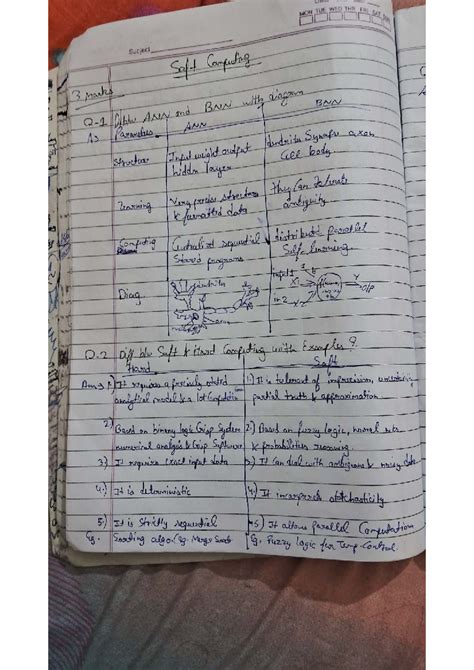 MON TUE WED THU FRI SAT SUN
Soft Computing
3 marks
Q-1 Diff b/w ANN and BNN with diagram
A> Parameters ANN BNN
Structure Input weight output dendrite Synapse axon
hidden layer Cell body
Learning Very precise structure They can tolerate
& formatted data ambiguity
Computing Centralized sequential distributed parallel
Stored programs Self learning
Diag dendrite input 1
in 2 Y O/P
Q.2 Diff b/w Soft & Hard Computing with Examples ?
Hard Soft
Ans 1) It requires a precisely stated 1) It is tolerant of imprecision, uncertainty,
analytical model & a lot Computation partial truth & approximation.
2) Based on binary logic Crisp System 2) Based on fuzzy logic, neural nets
numerical analysis & Crisp Software & probabilities reasoning.
3) It require exact input data 3) It can deal with ambiguous & noisy data
4) It is deterministic 4) It incorporate stochasticity
5) It is strictly sequential 5) It allows parallel Computation
Eg. Sorting algo. Eg. Merge Sort Eg. Fuzzy logic for Temp. Control.